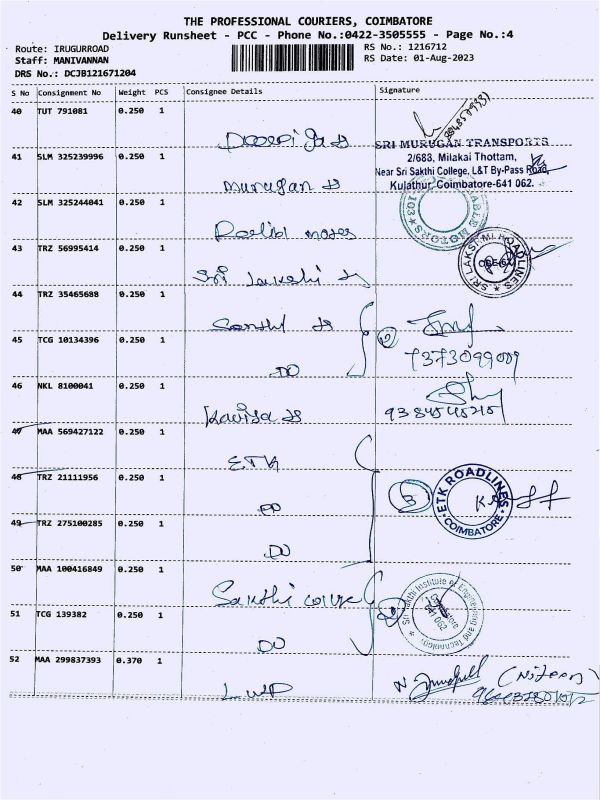 THE PROFESSIONAL COURIERS, COIMBATORE
Delivery Runsheet - PCC - Phone No.:0422-3505555 - Page No.:4
Route: IRUGURROAD
RS No.: 1216712
Staff: MANIVANNAN
RS Date: 01-Aug-2023
DRS No.: DCJB121671204
S No Consignment No Weight PCS Consignee Details Signature
40 TUT 791081 0.250 1
SRI MURUGAN TRANSPORTS
41 SLM 325239996 0.250 1 Murugan
2/683, Milakai Thottam,
Near Sri Sakthi College, L&T By-Pass Road,
Kulathur, Coimbatore-641 062.
42 SLM 325244041 0.250 1
MOTORS ★ 103 ★
43 TRZ 56995414 0.250 1 Sri
SRI LAKSHMI ROADLINES ★
44 TRZ 35465688 0.250 1
45 TCG 10134396 0.250 1 DO
46 NKL 8100041 0.250 1 Kavija
47 MAA 569427122 0.250 1 ETK
48 TRZ 21111956 0.250 1 DO 3
ETK ROADLINES
COIMBATORE
49 TRZ 275100285 0.250 1 DO
50 MAA 100416849 0.250 1 Sakthi
Sri Sakthi Institute of Engineering and Technology
641 062
51 TCG 139382 0.250 1 DO
52 MAA 299837393 0.370 1 LWP